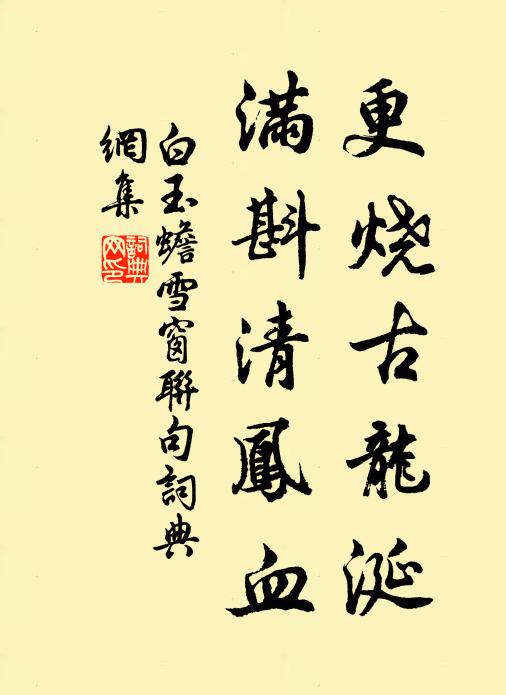 更烧古龍涎
满斟清鳳血
白玉蟾雪窗聯句詞典
網集
詞典
网印